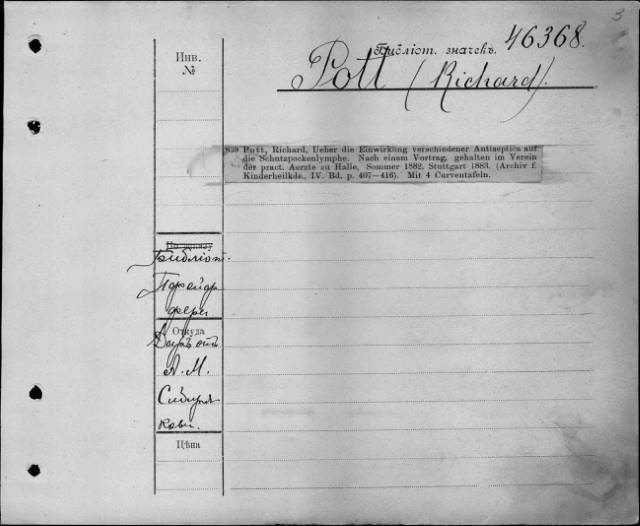 3
Библіот. значекъ. 46368.
Pott (Richard).
Инв.
№
Pott, Richard, Ueber die Einwirkung verschiedener Antiseptica auf
die Schutzpockenlymphe. Nach einem Vortrag, gehalten im Verein
der pract. Aerzte zu Halle, Sommer 1882. Stuttgart 1883. (Archiv f.
Kinderheilkde., IV. Bd. p. 407—416). Mit 4 Curventafeln.
По заказу
Библіот.
Откуда
А. М.
Цѣна